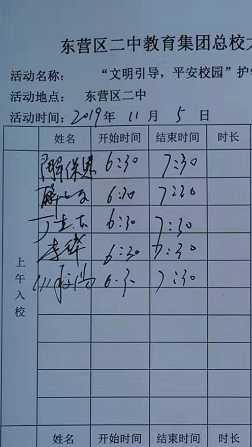 东营区二中教育集团总校
活动名称： “文明引导，平安校园”护
活动地点： 东营区二中
活动时间： 2019年 11月 5日
姓名 开始时间 结束时间 时长
6:30 7:30
6:30 7:30
6:30 7:30
李华 6:30 7:30
6:30 7:30
上午入校
姓名 开始时间 结束时间 时长